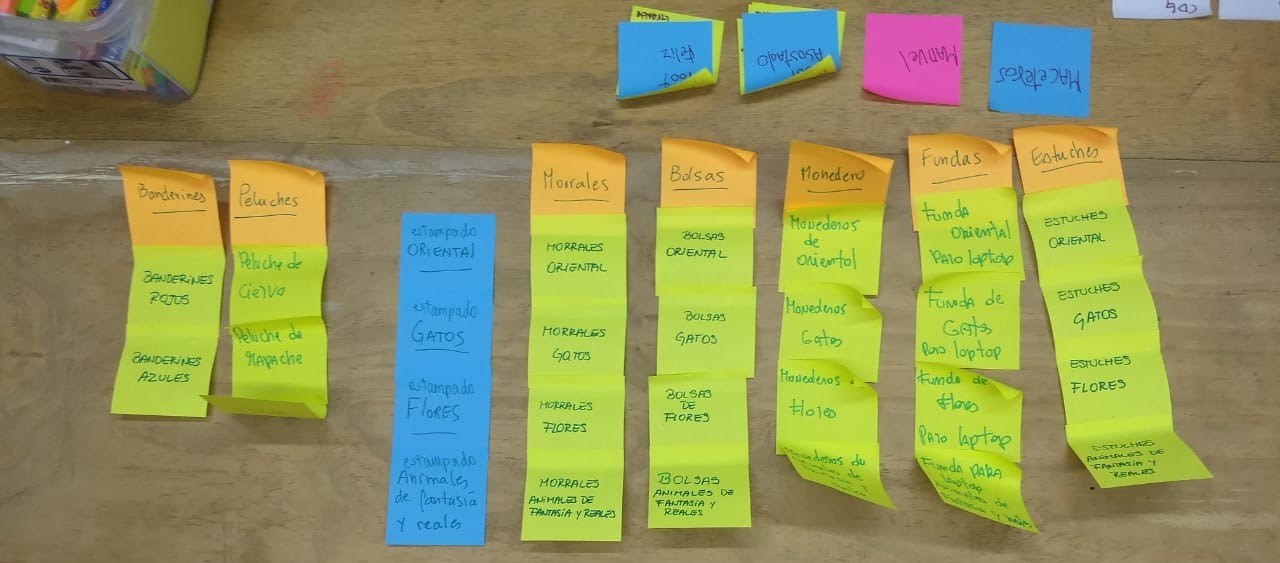 Feliz
100%
ASUSTADO
MANUEL
MACETEROS
CDS
Banderines
BANDERINES
ROJOS
BANDERINES
AZULES
Peluches
Peluche de
Ciervo
Peluche de
Mapache
estampado
ORIENTAL
estampado
GATOS
estampado
FLORES
estampado
Animales
de fantasía
y reales
Morrales
MORRALES
ORIENTAL
MORRALES
GATOS
MORRALES
FLORES
MORRALES
ANIMALES DE
FANTASIA Y REALES
Bolsas
BOLSAS
ORIENTAL
BOLSAS
GATOS
BOLSAS
DE
FLORES
BOLSAS
ANIMALES DE
FANTASIA Y
REALES
Monedero
Monederos
de
oriental
Monederos
Gatos
Monederos
flores
Monederos de
Fundas
Funda
oriental
Para laptop
Funda de
Gatos
Para laptop
Funda de
flores
Para laptop
Funda PARA
laptop
Animales de
Estuches
ESTUCHES
ORIENTAL
ESTUCHES
GATOS
ESTUCHES
FLORES
ESTUCHES
ANIMALES DE
FANTASIA Y
REALES